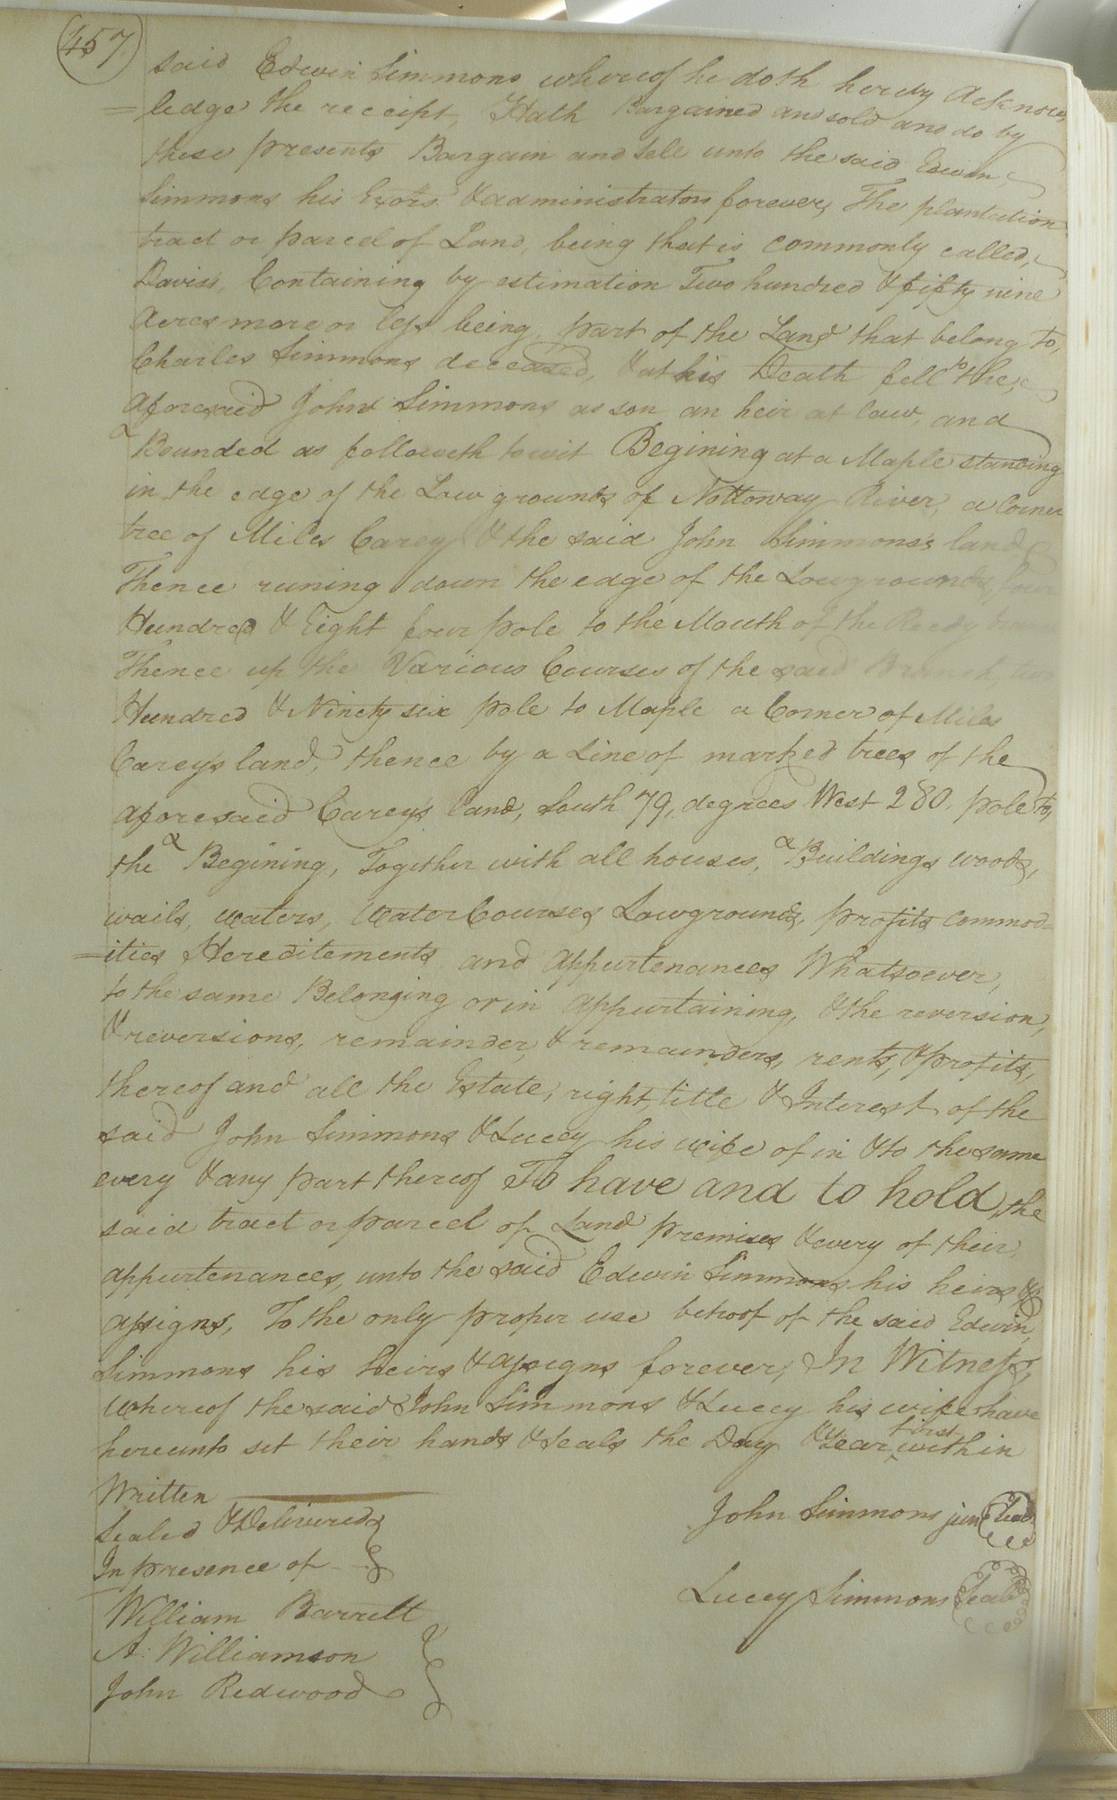 457
said Edwin Simmons whereof he doth hereby Acknow
=ledge the receipt, Hath Bargained and sold and do by
these presents Bargain and Sell unto the said Edwin
Simmons his Exors. & administrators forever, The plantation
tract or parcel of Land, being that is commonly called,
Davis's, Containing by estimation Two hundred & fifty nine
Acres more or less being part of the Land that belong to,
Charles Simmons deceased, & at his Death fell to the,
aforesaid John Simmons as son an heir at law, and
Bounded as followeth towit Begining at a Maple standing
in the edge of the Low grounds of Nottoway River, a Corner
tree of Miles Carey & the said John Simmons's land
Thence runing down the edge of the Lowgrounds, four
Hundred & Eight four pole to the Mouth of the Reedy
Thence up the Various Courses of the said Branch, two
Hundred & Ninety six pole to Maple a Corner of Miles
Careys land, thence by a Line of marked trees of the
aforesaid Carey's land, South 79, degrees West 280 pole to,
the Begining, Together with all houses, Buildings woods,
wails, waters, Water Courses Lowgrounds, profits commod=
=ities Hereditements and appurtenances Whatsoever,
to the same Belonging or in appurtaining, & the reversion,
& reversions, remainder, & remainders, rents, & profits,
thereof and all the Estate, right, title & Interest of the
said John Simmons & Lucey his wife of in & to the same
every & any part thereof To have and to hold, the
said tract or parcel of Land premises & every of their
appurtenances, unto the said Edwin Simmons his heirs &
assigns, To the only proper use behoof of the said Edwin,
Simmons his heirs & assigns forever, In Witness,
Whereof the said John Simmons & Lucey his wife have
hereunto set their hands & seals the Day & Year first within
Written
Sealed & Delivered
In presence of
William Barrett
A. Williamson
John Redwood
John Simmons jun Seal
Lucey Simmons Seal